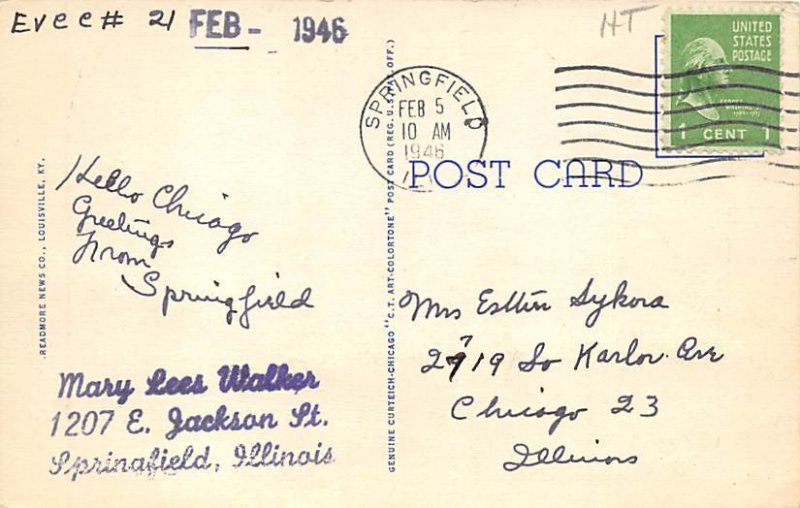 Evcc# 21 FEB - 1946
HT
UNITED
STATES
POSTAGE
1 CENT 1
SPRINGFIELD
FEB 5
10 AM
1946
POST CARD
Hello Chicago
Greetings
From
Springfield
Mary Lees Walker
1207 E. Jackson St.
Springfield, Illinois
READMORE NEWS CO., LOUISVILLE, KY.
GENUINE CURTEICH-CHICAGO "C.T. ART-COLORTONE" POST CARD (REG. U.S. PAT. OFF.)
Mrs Esther Sykora
2719 So Karlov Ave
Chicago 23
Illinois